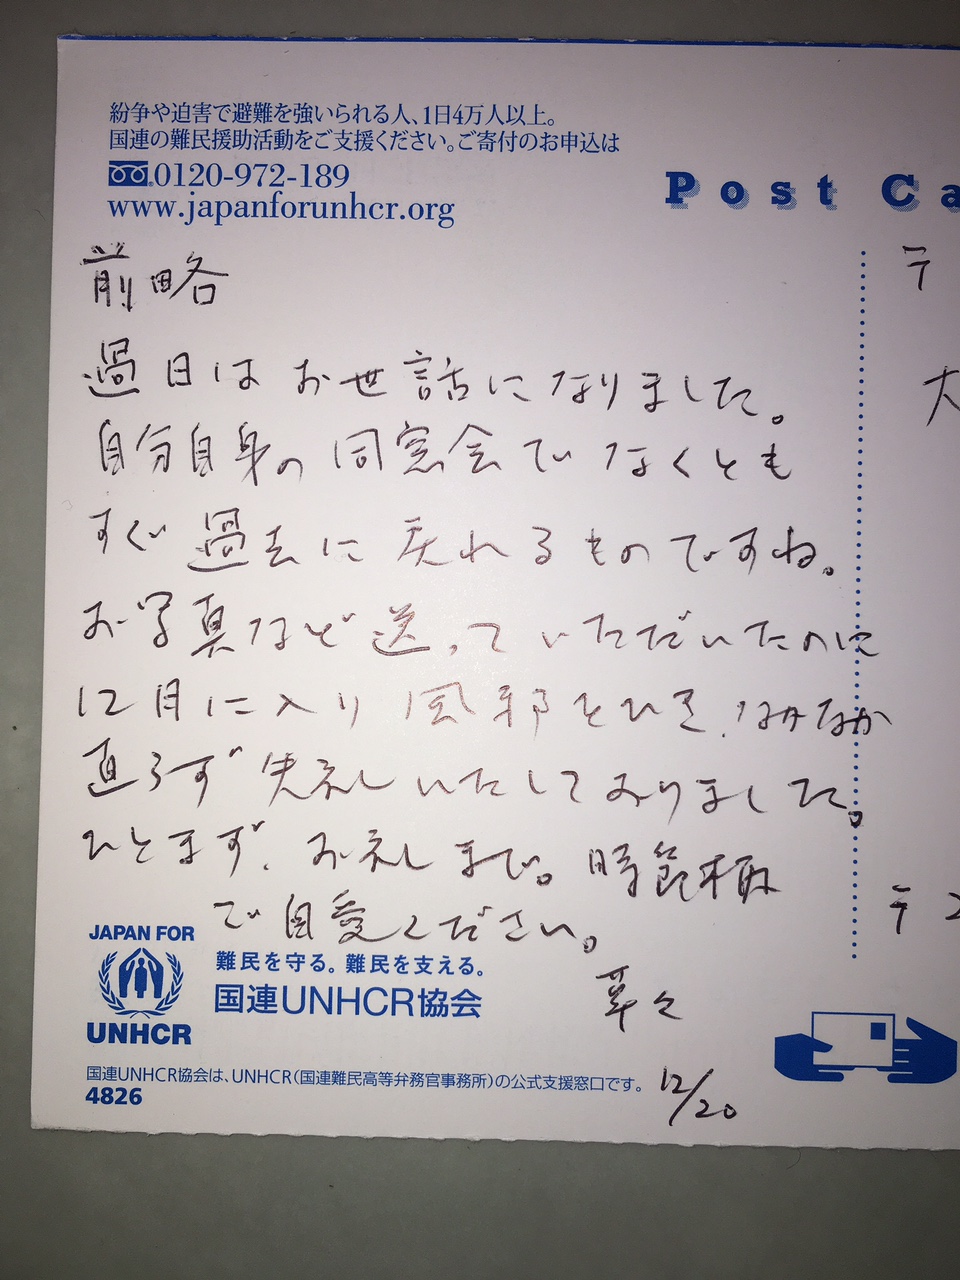 紛争や迫害で避難を強いられる人、1日4万人以上。
国連の難民援助活動をご支援ください。ご寄付のお申込は
0120-972-189
www.japanforunhcr.org
Post Ca
〒
大
前略
過日はお世話になりました。
自分自身の同窓会でなくとも
すぐ過去に戻れるものですね。
お写真など送っていただいたのに
12月に入り風邪をひき、なかなか
直らず失礼いたしておりました。
ひとまず、お礼まで。時節柄
ご自愛ください。
草々
12/20
〒
JAPAN FOR
UNHCR
難民を守る。難民を支える。
国連UNHCR協会
国連UNHCR協会は、UNHCR(国連難民高等弁務官事務所)の公式支援窓口です。
4826